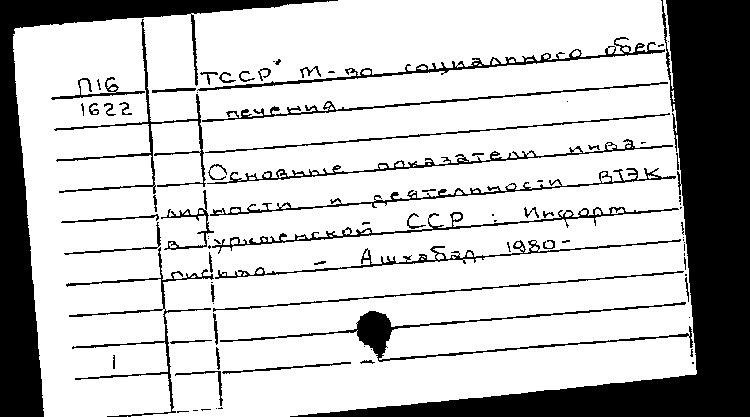 П16
1622
ТССР. М-во социального обес-
печения.
Основные показатели инва-
лидности и деятельности ВТЭК
в Туркменской ССР : Информ.
письмо. – Ашхабад, 1980-
1